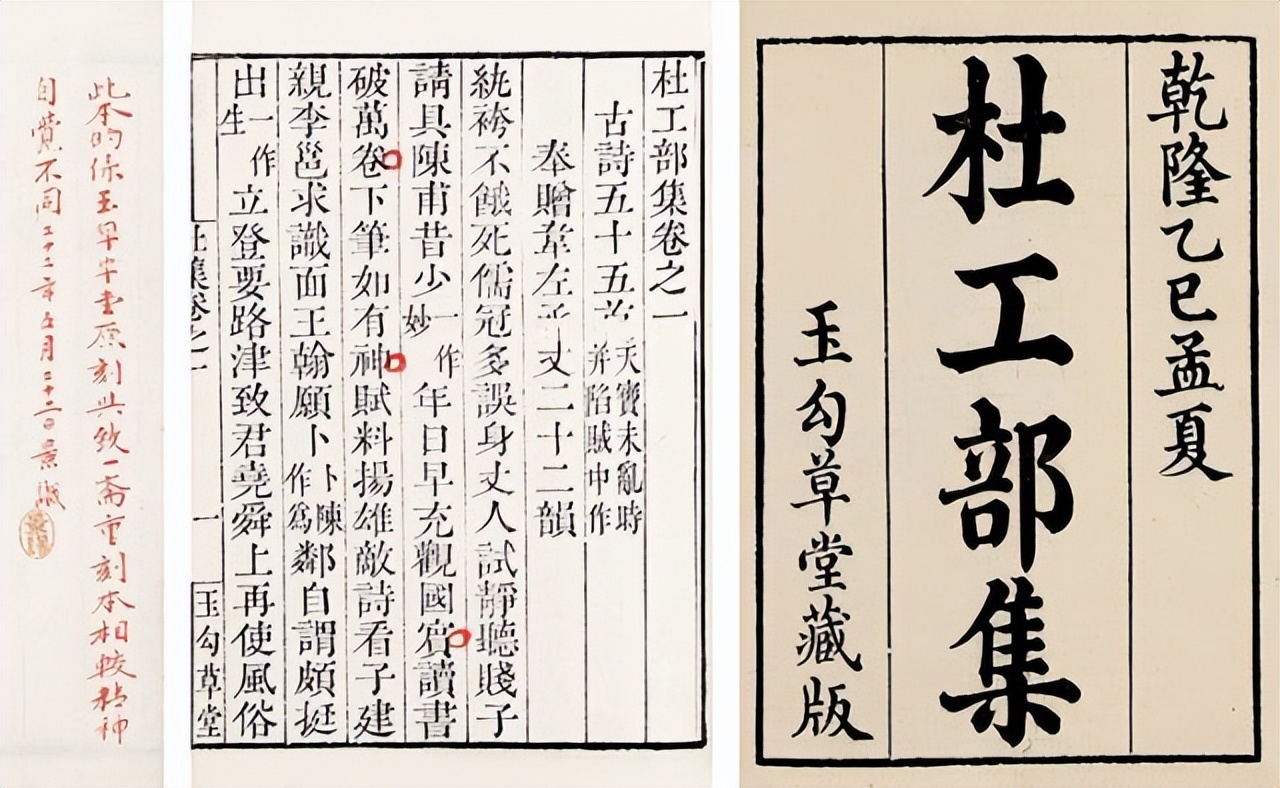 乾隆乙巳孟夏
杜工部集
玉勾草堂藏版
杜工部集卷之一
古詩五十五首 天寶未亂時并陷賊中作
奉贈韋左丞丈二十二韻
紈袴不餓死儒冠多誤身丈人試靜聽賤子
請具陳甫昔少一作妙年日早充觀國賓讀書
破萬卷下筆如有神賦料揚雄敵詩看子建
親李邕求識面王翰願卜卜陳作為鄰自謂頗挺
出一作生立登要路津致君堯舜上再使風俗
杜集卷之一 一 玉勾草堂
此本的係玉勾草堂原刻與致一齋重刻本相較精神
自覺不同 年五月二十二日